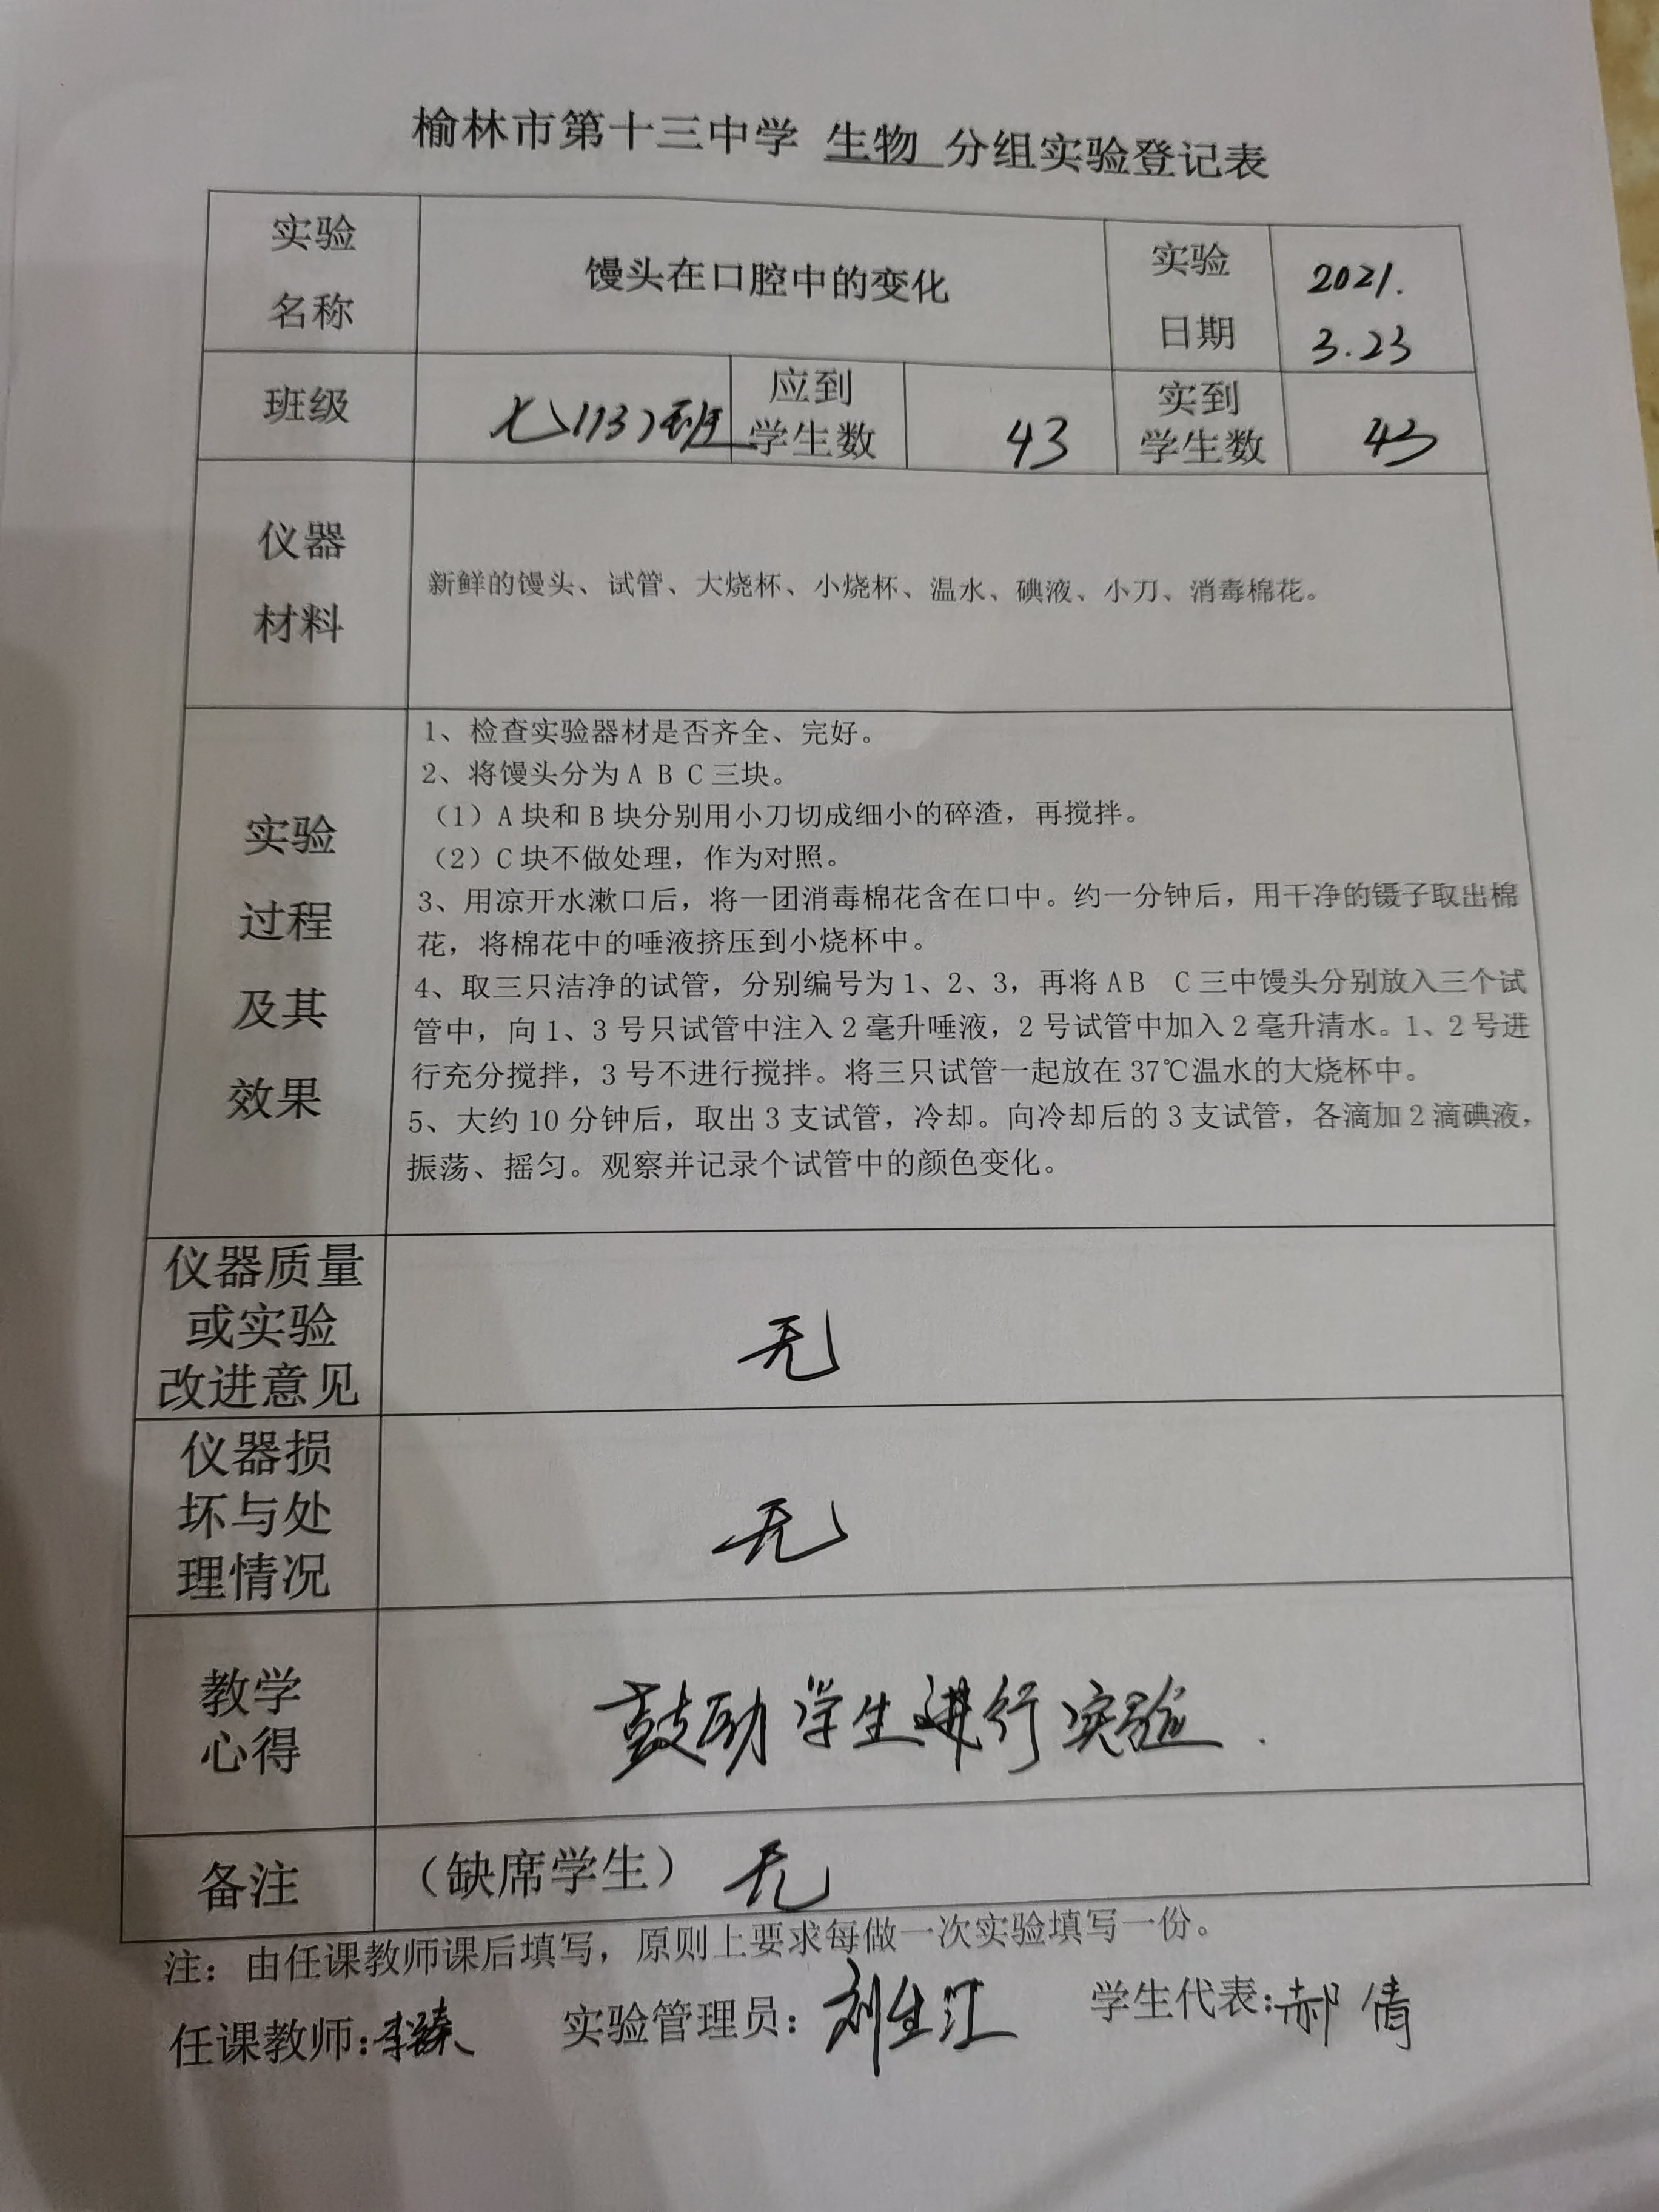 榆林市第十三中学 生物 分组实验登记表
实验
名称
馒头在口腔中的变化
实验
日期
2021.
3.23
班级
七(13)班
应到
学生数
43
实到
学生数
43
仪器
材料
新鲜的馒头、试管、大烧杯、小烧杯、温水、碘液、小刀、消毒棉花。
实验
过程
及其
效果
1、检查实验器材是否齐全、完好。
2、将馒头分为 A B C 三块。
（1）A 块和 B 块分别用小刀切成细小的碎渣，再搅拌。
（2）C 块不做处理，作为对照。
3、用凉开水漱口后，将一团消毒棉花含在口中。约一分钟后，用干净的镊子取出棉
花，将棉花中的唾液挤压到小烧杯中。
4、取三只洁净的试管，分别编号为 1、2、3，再将 A B C 三中馒头分别放入三个试
管中，向 1、3 号只试管中注入 2 毫升唾液，2 号试管中加入 2 毫升清水。1、2 号进
行充分搅拌，3 号不进行搅拌。将三只试管一起放在 37℃温水的大烧杯中。
5、大约 10 分钟后，取出 3 支试管，冷却。向冷却后的 3 支试管，各滴加 2 滴碘液，
振荡、摇匀。观察并记录个试管中的颜色变化。
仪器质量
或实验
改进意见
无
仪器损
坏与处
理情况
无
教学
心得
鼓励学生进行实验.
备注
（缺席学生） 无
注：由任课教师课后填写，原则上要求每做一次实验填写一份。
任课教师: 实验管理员：刘生江 学生代表:郝倩